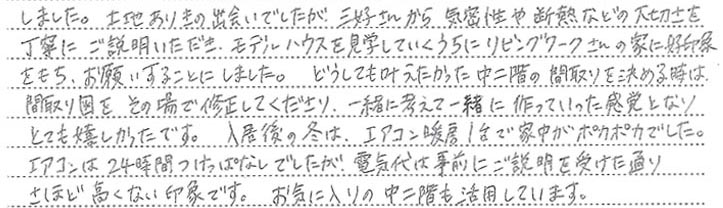 しました。土地ありきの出会いでしたが、三好さんから気密性や断熱などの大切さを
丁寧にご説明いただき、モデルハウスを見学していくうちにリビングワークさんの家に好印象
をもち、お願いすることにしました。どうしても叶えたかった中二階の間取りを決める時は、
間取り図をその場で修正してくださり、一緒に考えて一緒に作っていった感覚となり
とても嬉しかったです。入居後の冬は、エアコン暖房1台で家中がポカポカでした。
エアコンは24時間つけっぱなしでしたが、電気代は事前にご説明を受けた通り
さほど高くない印象です。お気に入りの中二階も活用しています。